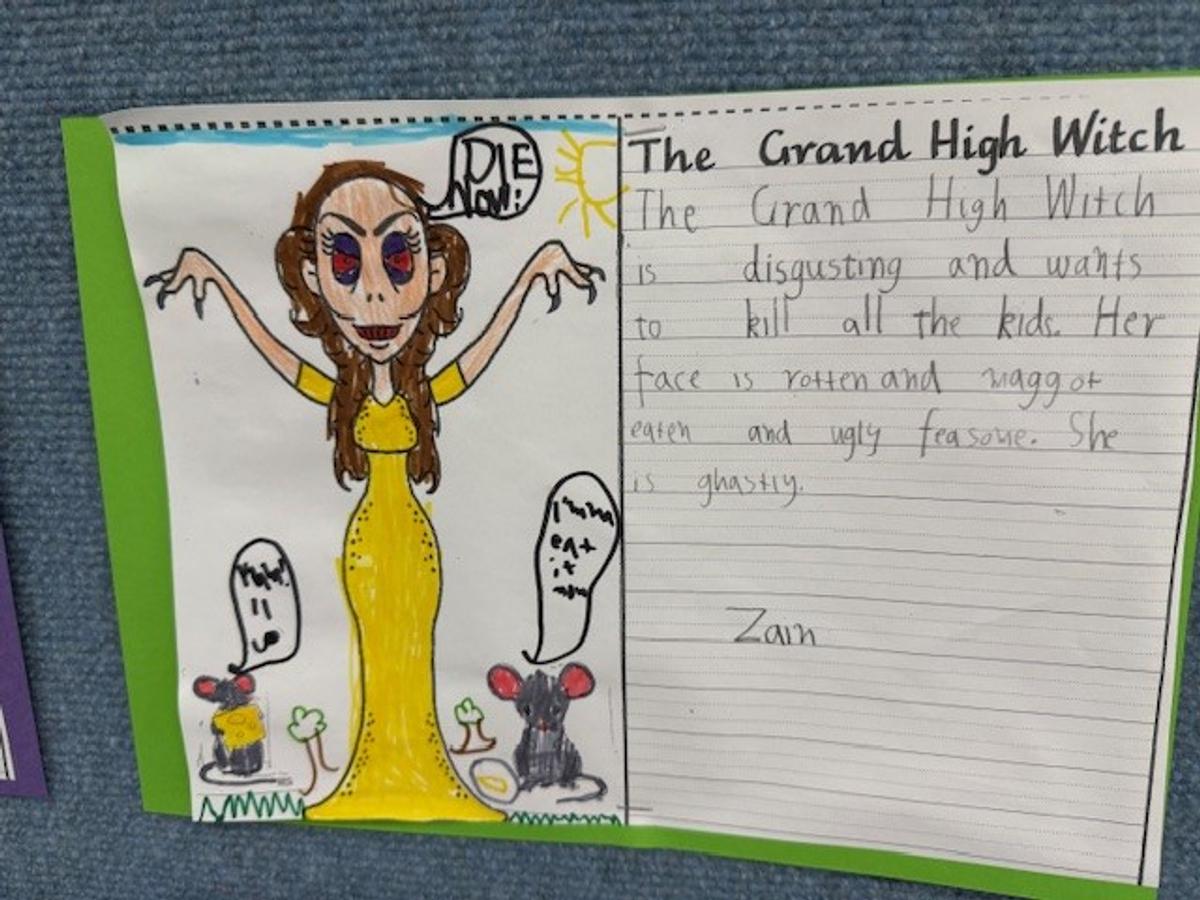 DIE
NOW!
The Grand High Witch
The Grand High Witch
is disgusting and wants
to kill all the kids. Her
face is rotten and maggot
eaten and ugly feasome. She
is ghastly.
Zain
eat
it